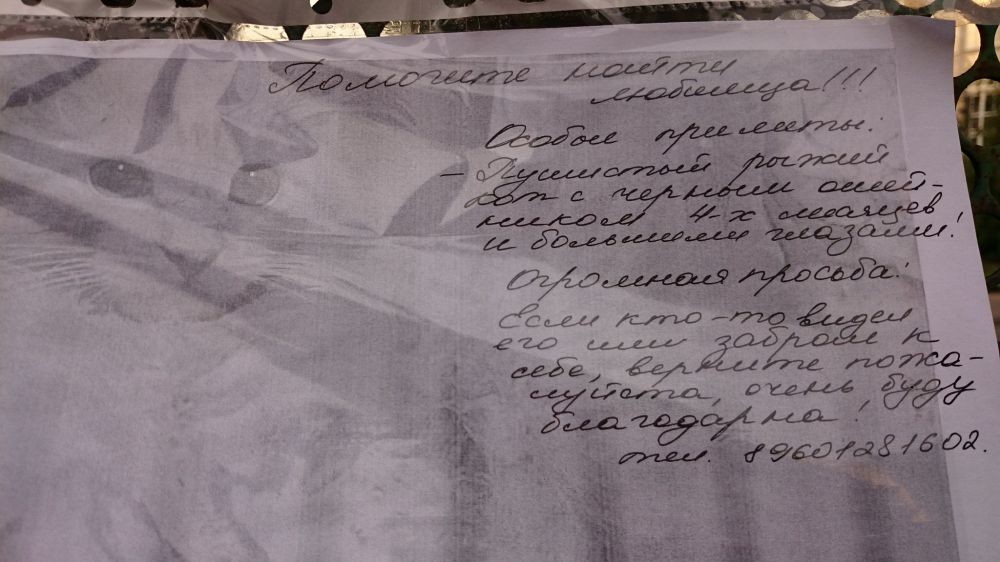 Помогите найти
любимца!!!
Особые приметы:
- Пушистый рыжий
кот с черным ошей-
ником 4-х месяцев
и большими глазами!
Огромная просьба!
Если кто-то видел
его или забрал к
себе, верните пожа-
луйста, очень буду
благодарна!
тел. 89601281602.